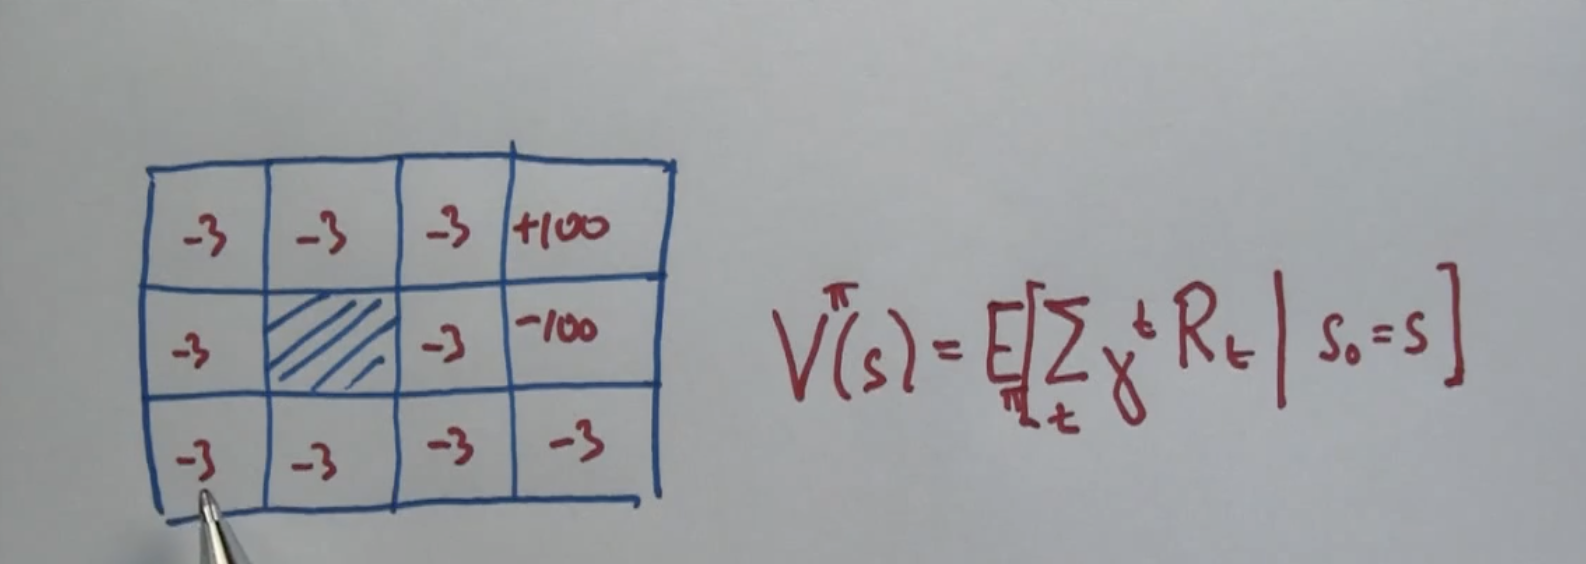 -3 -3 -3 +100
-3 -3 -100
-3 -3 -3 -3
V^π(s) = E_π[∑_t γ^t R_t | s₀ = s]